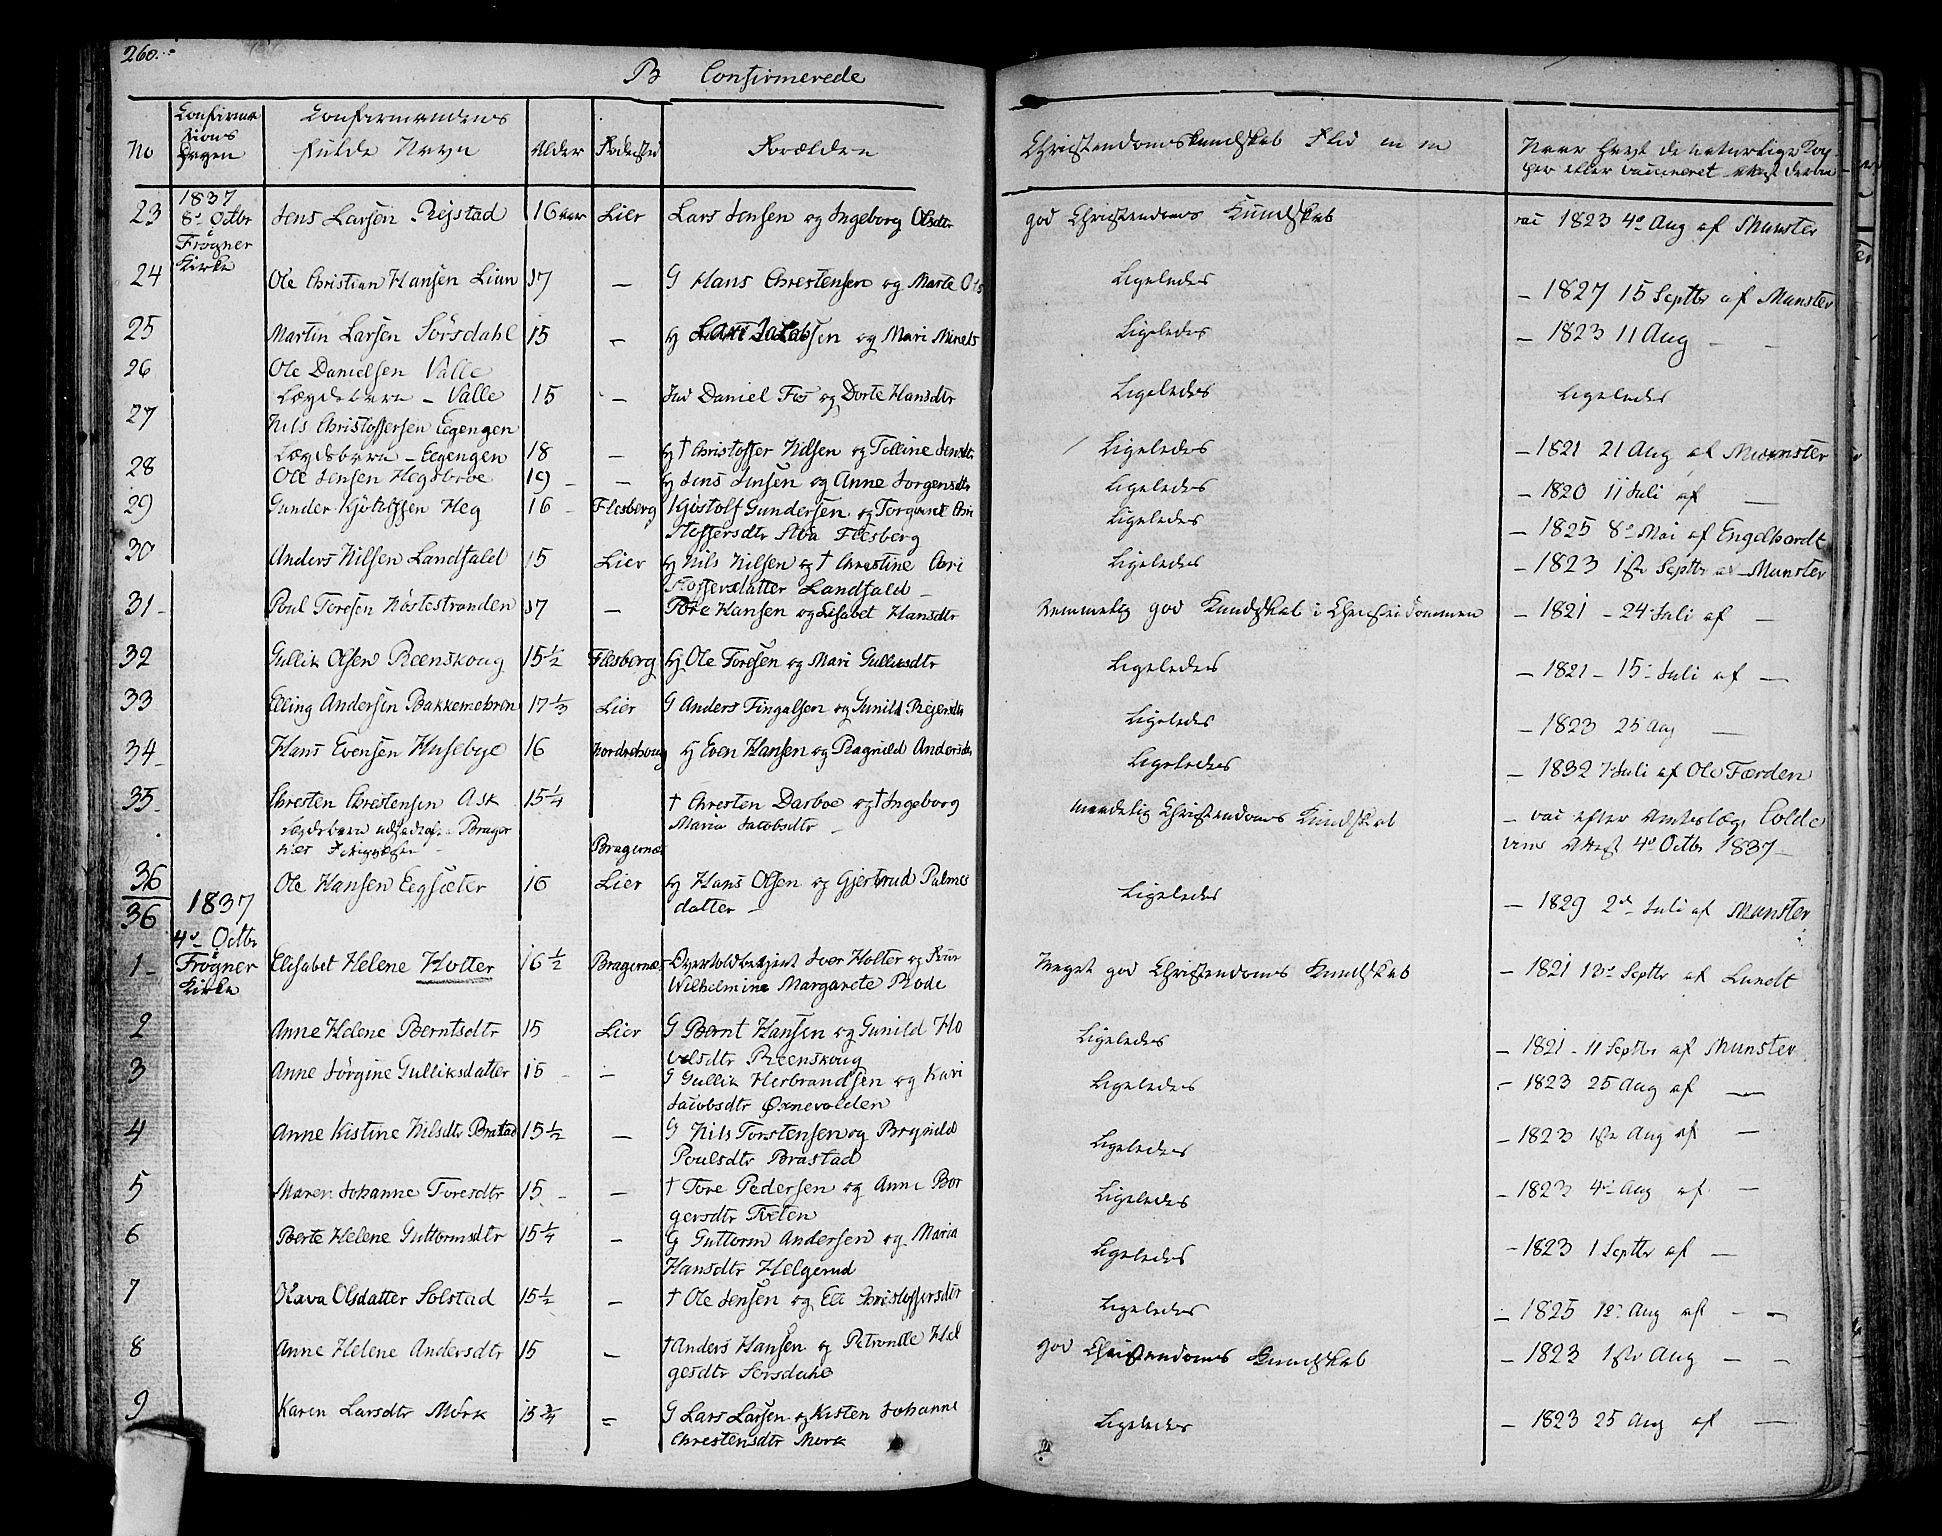 260.
B Confirmerede
No
Confirma
tions
Dagen
Confirmandens
fulde Navn
Alder
Fødested
Forældre
Christendomskundskab Flid m m
Naar havt de naturlige Kop
per eller vaccineret
23 1837 8de Octbr Frogner Kirke Jens Larsen Rejstad 16 aar Lier Lars Jensen og Ingeborg Olsdtr god Christendoms Kundskab vac 1823 4de Aug af Munster
24 Ole Christian Hansen Lian 17 — G Hans Chrestensen og Marte Ols Ligeledes — 1827 15 Septbr af Munster
25 Martin Larsen Sørsdahl 15 — Lars Jacobsen og Mari Ligeledes — 1823 11 Aug — —
26 Ole Danielsen Valle
Lægdsbarn — Valle 15 — Daniel Fos og Dorte Hansdtr Ligeledes Ligeledes
27 Nils Christoffersen Eegengen
Lægdsbarn — Eegengen 18 — † Christoffer Nilsen og Tolline Jensdtr Ligeledes — 1821 21 Aug af Munster
28 Ole Jensen Hegsbroe 19 — — Jens Jensen og Anne Jorgensdtr Ligeledes — 1820 11 Juli af —
29 Gunder Kjøstolfsen Heg 16 — Flesberg Kjøstolf Gundersen og Torgunel Chri Ligeledes — 1825 8de Mai af Engelhardt
stoffersdtr Aba Flesberg
30 Anders Nilsen Landfald 15 Lier Nils Nilsen og † Christine Chri Ligeledes — 1823 1ste Septbr af Munster
stoffersdatter Landfald —
31 Poul Toresen Nøstestranden 17 — Tore Hansen og Lisabet Hansdtr Temmelig god Kundskab i Christendommen — 1821 — 24 Juli af —
32 Gullik Olsen Reenskoug 15½ Flesberg Ole Toresen og Mari Gulliksdtr Ligeledes — 1821 — 15 Juli af —
33 Elling Andersen Bakkemobraa 17⅓ Lier G Anders Fingalsen og Gunild Rejersdtr Ligeledes — 1823 25 Aug —
34 Hans Evensen Husebye 16 Nordrehoug Even Hansen og Ragnild Andersdtr Ligeledes — 1832 7 Juli af Ole Færden
35 Chresten Chrestensen Ask 15¼ † Chresten Darboe og † Ingeborg maadelig Christendoms Kundskab — vac efter Colde
Lægdsbarn — Brager Bragernæs Maria Jacobsdtr — vins Attest 4de Octbr 1837 —
36 Ole Hansen Eegsæter 16 Lier Hans Olsen og Gjertrud Palmes Ligeledes — 1829 2den Juli af Munster
36 datter —
1 1837 4de Octbr Frogner Kirke Elisabet Helene Holter 16½ Bragernæs Iver Holter og Meget god Christendoms Kundskab — 1821 13de Septbr af Lundt
Wilhelmine Margarete Rode
2 Anne Helene Berntsdtr 15 Lier G Bernt Hansen og Gunild Ho Ligeledes — 1821 — 11 Septbr af Munster
velsdtr Reenskoug
3 Anne Jørgine Gulliksdatter 15 — — G Gullik Herbrandsen og Kari Ligeledes — 1823 25 Aug af —
Jacobsdtr Øxnevolden
4 Anne Kistine Nilsdtr Brastad 15½ — G Nils Torstensen og Bognild Ligeledes — 1823 1ste Aug af —
Poulsdtr Brastad
5 Maren Johanne Toresdtr 15 — — † Tore Pedersen og Anne Bor Ligeledes — 1823 4de Aug af —
gersdtr Tveten
6 Berte Helene Guttormsdtr 15¼ — G Guttorm Andersen og Maria Ligeledes — 1823 1 Septbr af —
Hansdtr Helgerud
7 Olava Olsdatter Solstad 15½ — † Ole Jensen og Eli Christoffersdtr Ligeledes — 1825 12 Aug af — —
8 Anne Helene Andersdtr 15 — † Anders Hansen og Petronelle Hel god Christendoms Kundskab — 1823 1ste Aug — —
gesdtr Sørsdahl
9 Karen Larsdtr Mørk 15¾ = G Lars Larsen og Kisten Johanne Ligeledes — 1823 25 Aug af —
Chrestensdtr Mørk